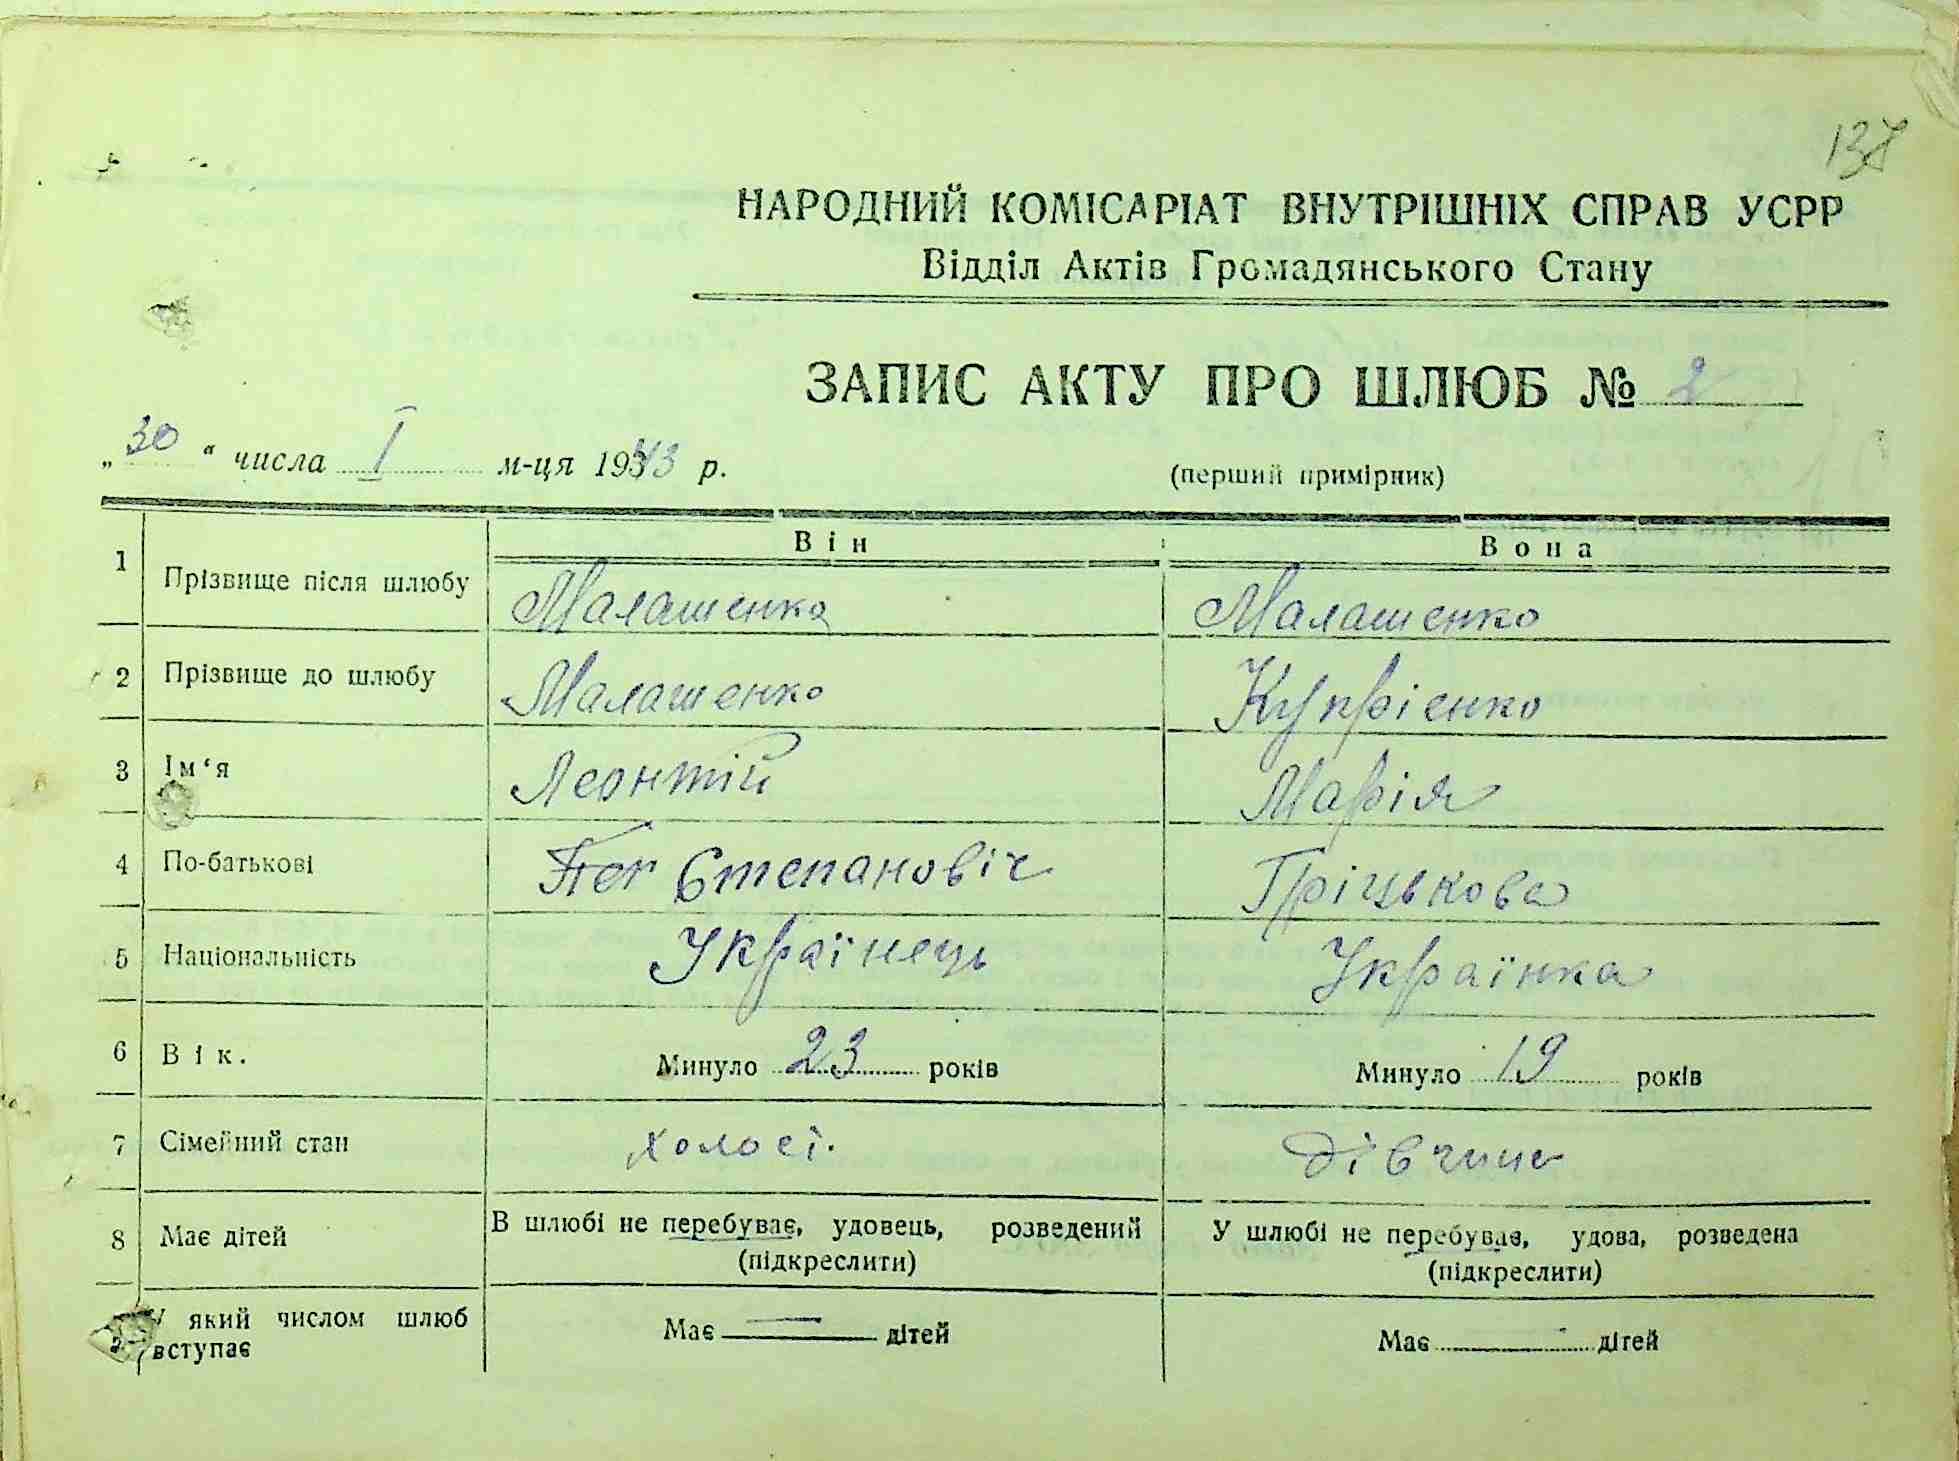 137
НАРОДНИЙ КОМІСАРІАТ ВНУТРІШНІХ СПРАВ УСРР
Відділ Актів Громадянського Стану
ЗАПИС АКТУ ПРО ШЛЮБ № 2
„30“ числа I м-ця 1943 р.
(перший примірник)
Він Вона
1 Прізвище після шлюбу Малашенко Малашенко
2 Прізвище до шлюбу Малашенко Купрієнко
3 Ім‘я Леонтій Марія
4 По-батькові Степановіч Гріцькова
5 Національність Українець Українка
6 Вік. Минуло 23 років Минуло 19 років
7 Сімейний стан холості. дівчина
8 Має дітей В шлюбі не перебуває, удовець, розведений У шлюбі не перебуває, удова, розведена
(підкреслити) (підкреслити)
У який числом шлюб
вступає Має — дітей Має дітей